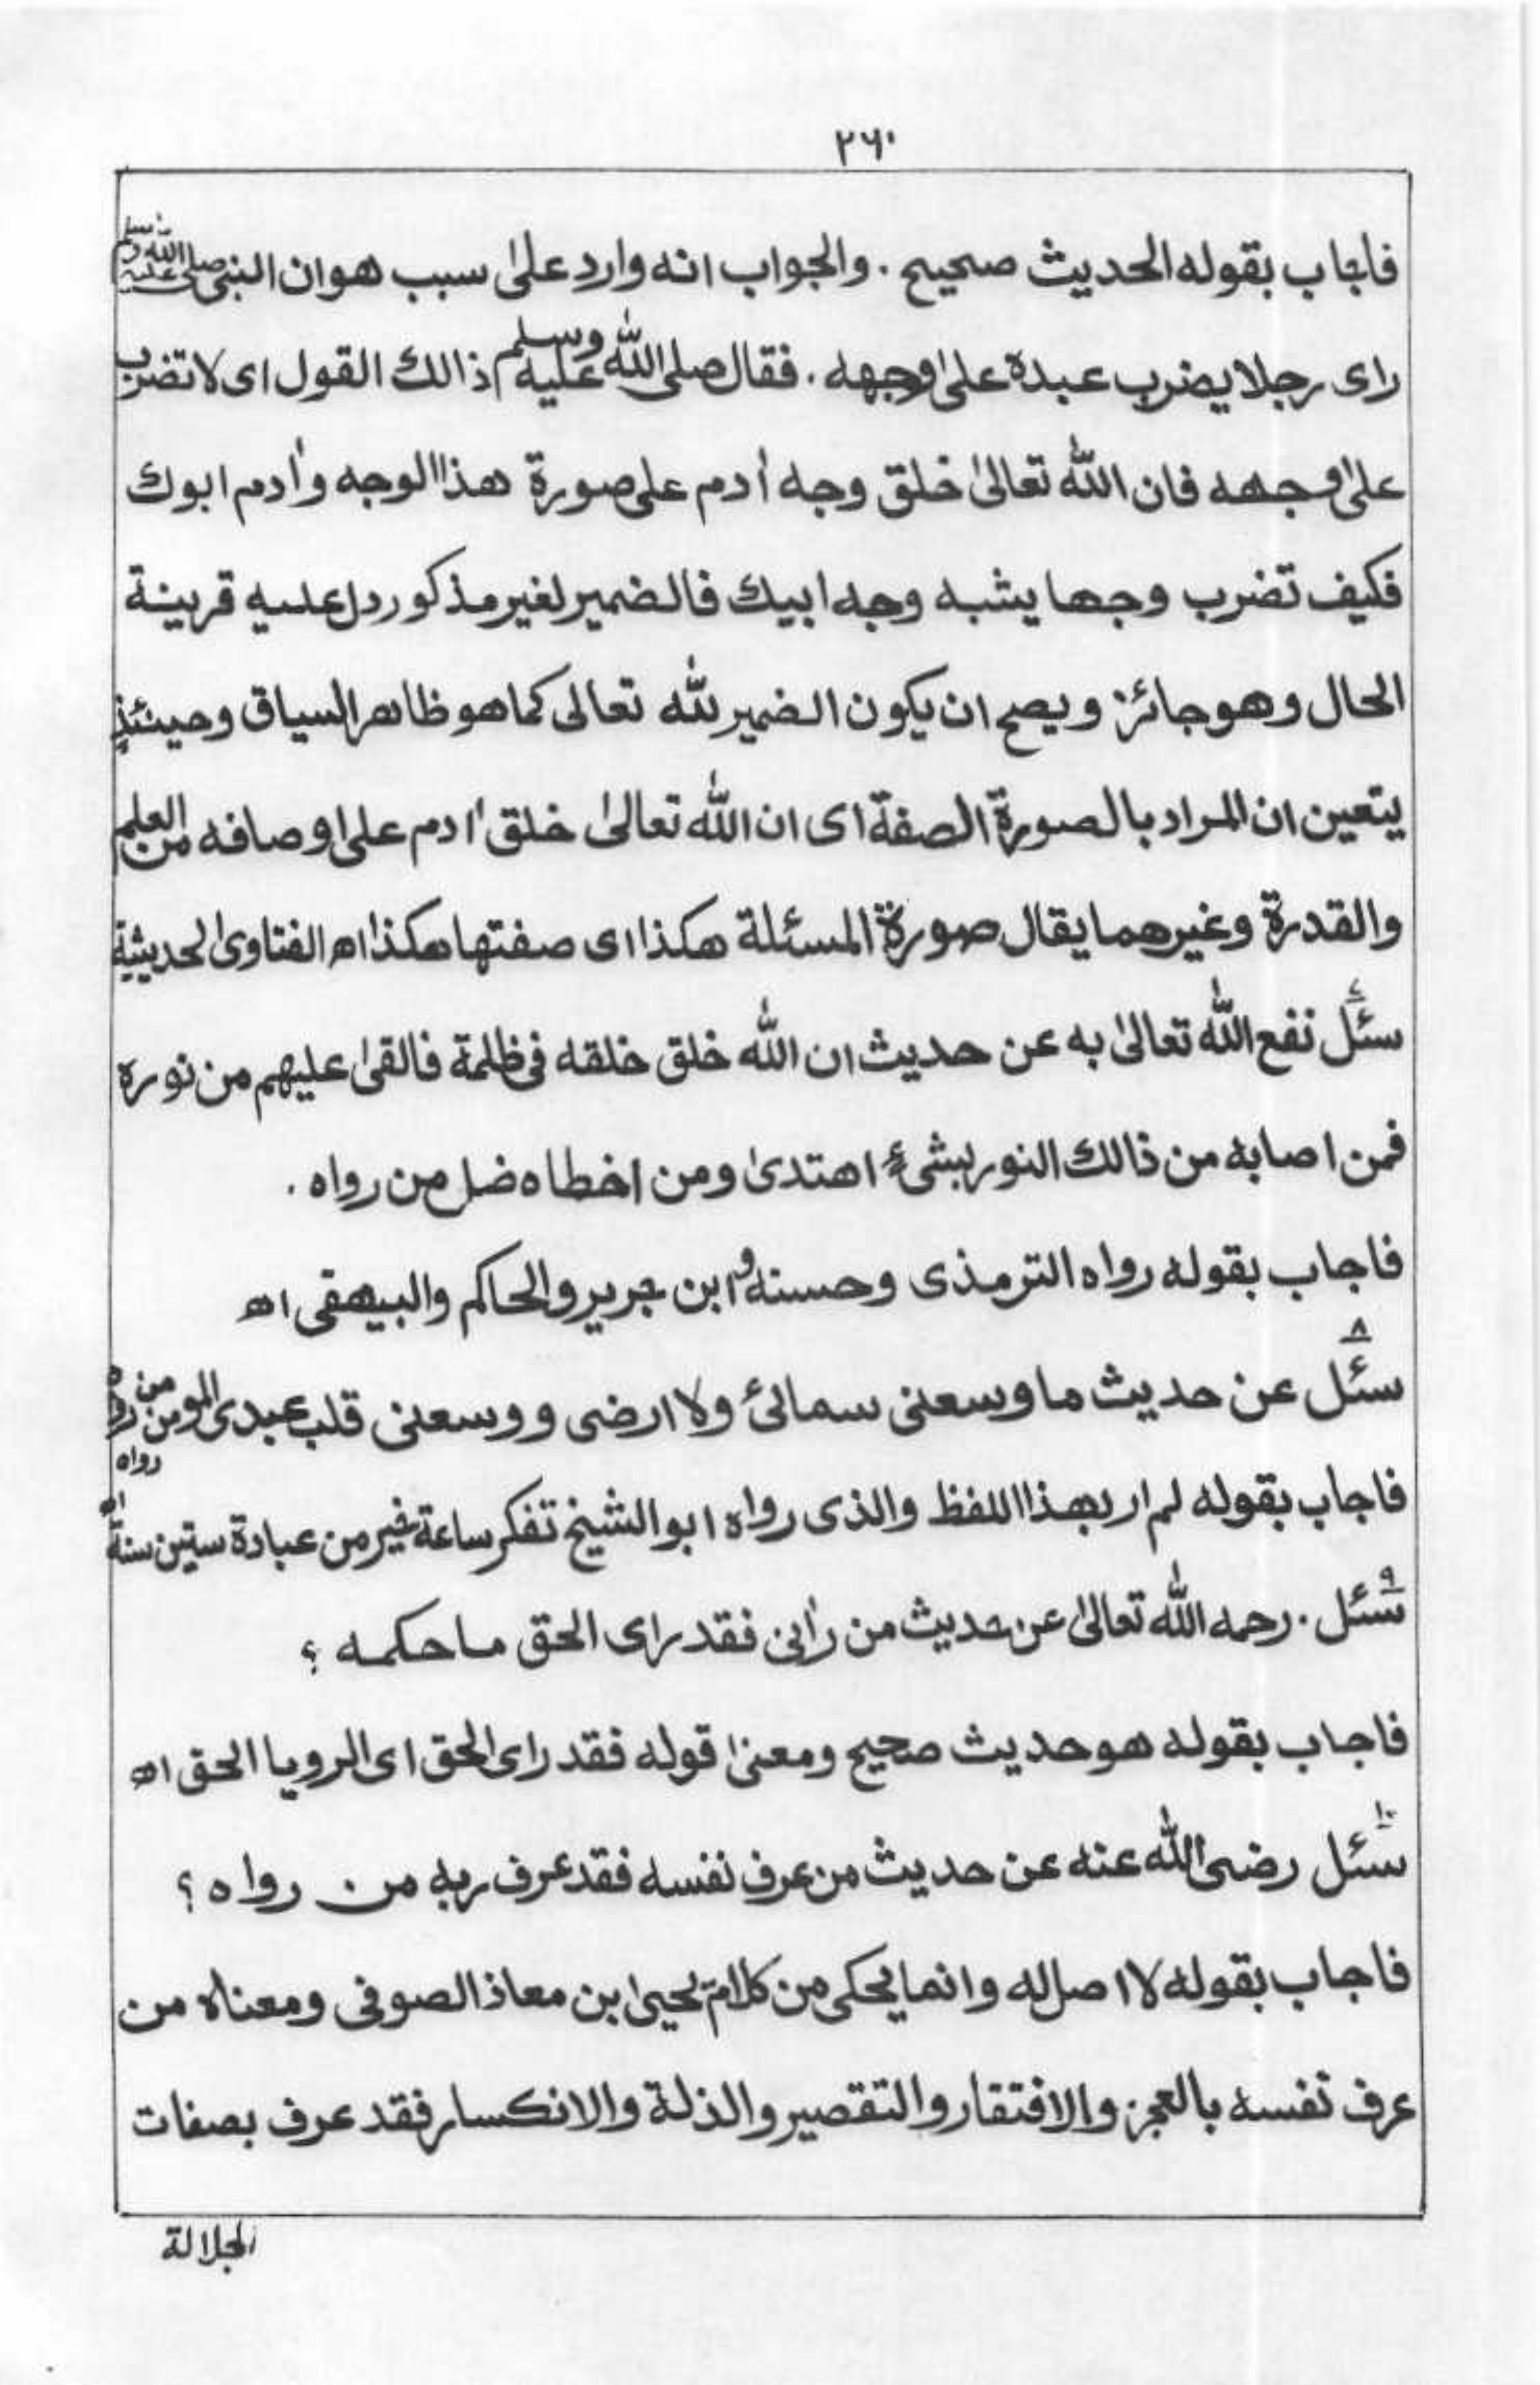 ۲۶۰
فاجاب بقوله الحديث صحيح . والجواب انه وارد علىٰ سبب هوان النبى صلى الله عليه وسلم
راى رجلا يضرب عبدہ علىٰ وجهه . فقال صلى الله عليه وسلم ذالك القول اى لا تضرب
علىٰ وجهه فان الله تعالىٰ خلق وجه أدم على صورة هذا الوجه وأدم ابوك
فكيف تضرب وجها يشبه وجه ابيك فالضمير لغير مذكور دل عليه قرينة
الحال وهو جائز ويصح ان يكون الضمير لله تعالى كما هو ظاهر السياق وحينئذٍ
يتعين ان المراد بالصورة الصفة اى ان الله تعالىٰ خلق أدم على اوصافه من العلم
والقدرة وغيرهما يقال صورة المسئلة هكذا اى صفتها هكذا اھ الفتاوىٰ الحديثية
سئل نفع الله تعالىٰ به عن حديث ان الله خلق خلقه فى ظلمة فالقىٰ عليهم من نورہ
فمن اصابه من ذالك النور بشىءٍ اهتدىٰ ومن اخطاہ ضل من رواہ .
فاجاب بقوله رواہ الترمذى وحسنه و ابن جرير والحاكم والبيهقى اھ
۸
سئل عن حديث ما وسعنى سمائى ولا ارضى ووسعنى قلب عبدى المومن من رواہ
رواہ
فاجاب بقوله لم ار بهذا اللفظ والذى رواہ ابو الشيخ تفكر ساعة خير من عبادة ستين سنة اھ
۹
سئل . رحمه الله تعالىٰ عن حديث من رأنى فقد راى الحق ما حكمه ؟
فاجاب بقوله هو حديث صحيح ومعنىٰ قوله فقد راى الحق اى الرويا الحق اھ
۱۰
سئل رضى الله عنه عن حديث من عرف نفسه فقد عرف ربه من رواہ ؟
فاجاب بقوله لا اصل له وانما يحكى من كلام يحيىٰ بن معاذ الصوفى ومعناہ من
عرف نفسه بالعجز والافتقار والتقصير والذلة والانكسار فقد عرف بصفات
الجلالة